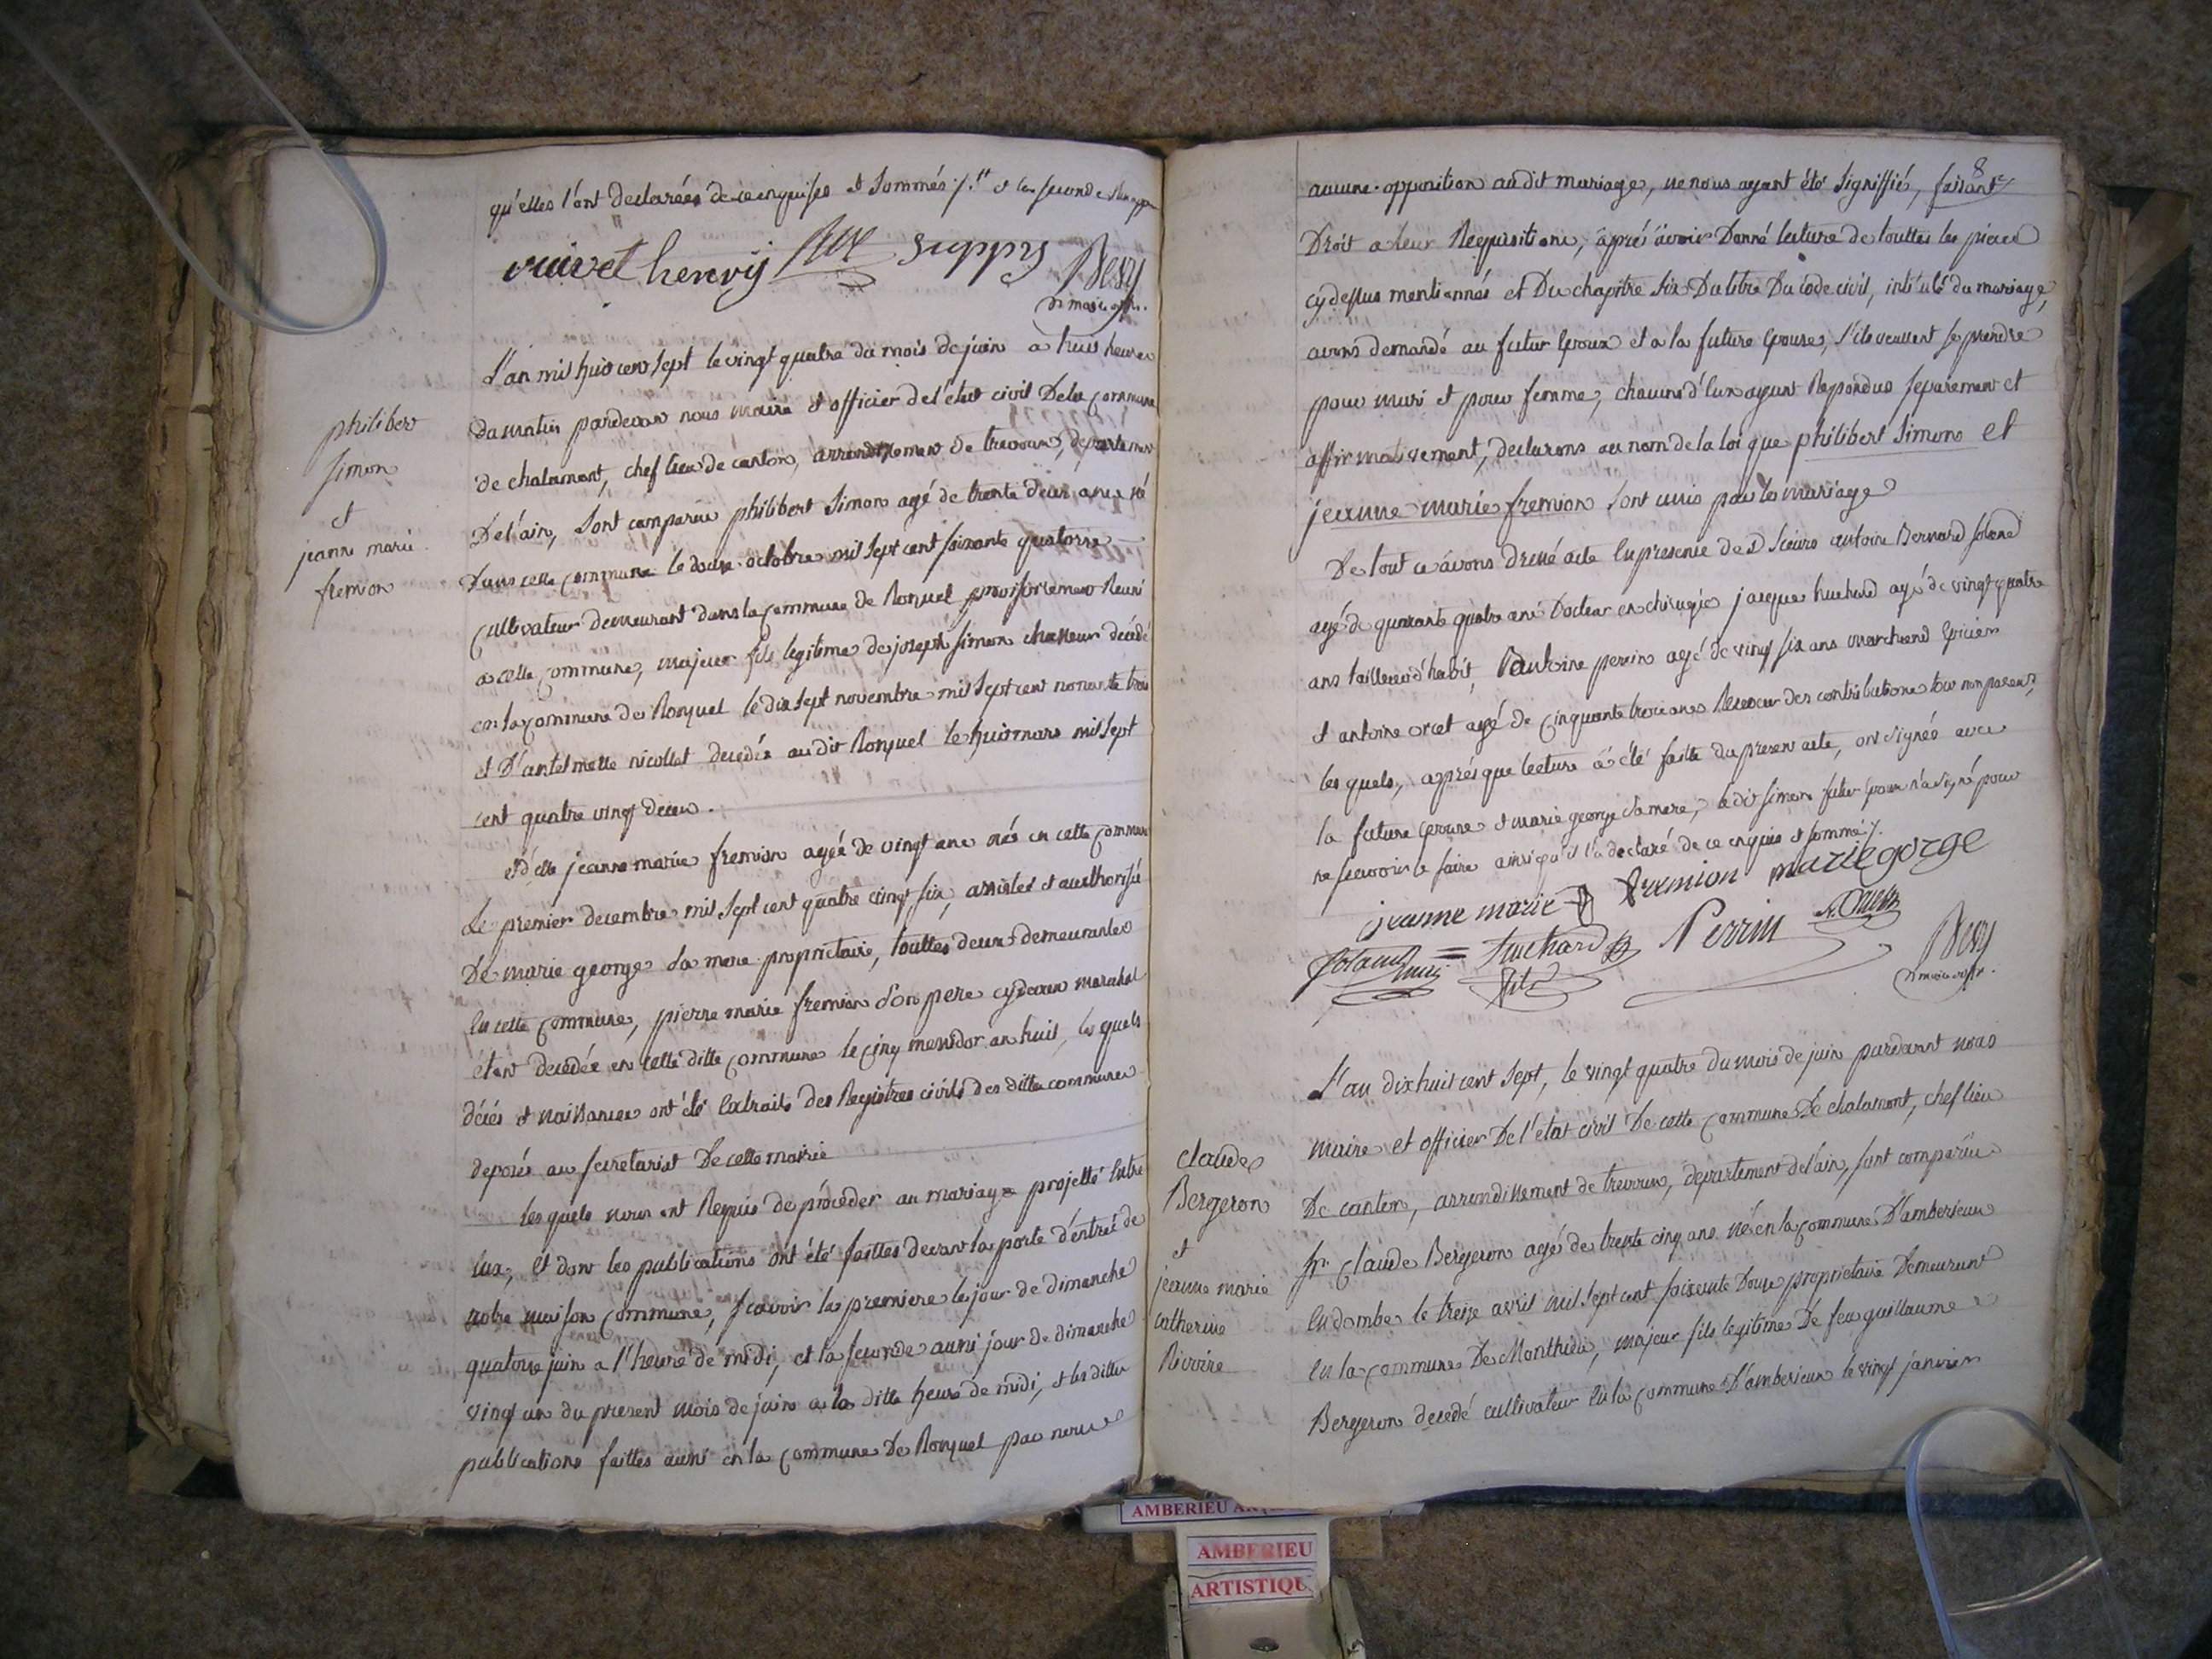 qu'elles l'ont declarées de ce enquises et sommés ./. et la seconde
vuivet henry suppry Besy
philibert
simon
et
jeanne marie
fremion
L'an mil huit cent sept le vingt quatre du mois de juin a huit heures
du matin pardevant nous maire et officier de l'état civil De la commune
de chalamont, chef lieu de canton, arrondissement de trevoux, departement
De l'ain, sont comparus philibert simon agé de trente deux ans né
Dans cette commune le douze octobre mil sept cent soixante quatorze
cultivateur demeurant dans la commune de Ronzuel provisoirement Reuni
a cette commune, majeur fils legitime de joseph simon chasseur décédé
en la commune de Ronzuel le dix sept novembre mil sept cent nonante trois
et D'antelmette nicollet decedée au dit Ronzuel le huit mars mil sept
cent quatre vingt deux .
et d'elle jeanne marie fremion agée de vingt ans née en cette commune
Le premier decembre mil sept cent quatre vingt six, assistée et authorisée
De marie george sa mere proprietaire, touttes deux demeurantes
en cette commune, pierre marie fremion son pere cydevant marechal
étant decedée en cette ditte commune le cinq messidor an huit, les quels
décés et naissances ont été extraits des Registres civils des dittes communes
deposés au secretariat De cette mairie
les quels nous ont Requis de proceder au mariage projetté entre
eux, et dont les publications ont été faittes devant la porte d'entrée de
notre maison commune, scavoir la premiere le jour de dimanche
quatorze juin a l'heure de midi, et la seconde aussi jour de dimanche
vingt un du present mois de juin a la ditte heure de midi, et les dittes
publications faittes aussi en la commune De Ronzuel par nous
8
aucune opposition au dit mariage, ne nous ayant été signiffié, faisant
Droit a leur Requisitions, aprés avoir Donné lecture de touttes les pieces
cydessus mentionnés et Du chapitre six Du titre Du code civil, intitulé du mariage,
avons demandé au futur epoux et a la future epouse, s'ils veullent se prendre
pour mari et pour femme, chacun d'eux ayant Repondus separement et
affirmativement, declarons au nom de la loi que philibert Simon et
jeanne marie fremion sont unis par le mariage
De tout ce avons dressé acte en presence de Sieurs antoine Bernard
agé de quarante quatre ans Docteur en chirurgie jacques huchard agé de vingt quatre
ans tailleur d'habit, antoine perrin agé de vingt six ans marchand epicier
et antoine orcet agé de cinquante trois ans Receveur des contributions tous non parens,
les quels, aprés que lecture a été faitte du present acte, ont signés avec
la future epouse et marie george sa mere, le dit simon futur epoux n'a signé pour
ne scavoir le faire ainsi qu'il l'a declaré de ce enquis et sommé ./.
jeanne marie fremion marie gorge
huchard fils Perrin Besy
claude
Bergeron
et
jeanne marie
catherine
Rivoire
L'an dixhuit cent sept, le vingt quatre du mois de juin pardevant nous
maire et officier De l'etat civil De cette commune De chalamont, chef lieu
De canton, arrondissement de trevoux, departement de l'ain, sont comparus
Sr. Claude Bergeron agé de trente cinq ans né en la commune D'amberieux
en dombes le treize avril mil sept cent soixante Douze proprietaire Demeurant
en la commune De Monthieu, majeur fils legitime De feu guillaume
Bergeron decedé cultivateur en la commune D'amberieux le vingt janvier
AMBERIEU
AMBERIEU
ARTISTIQU